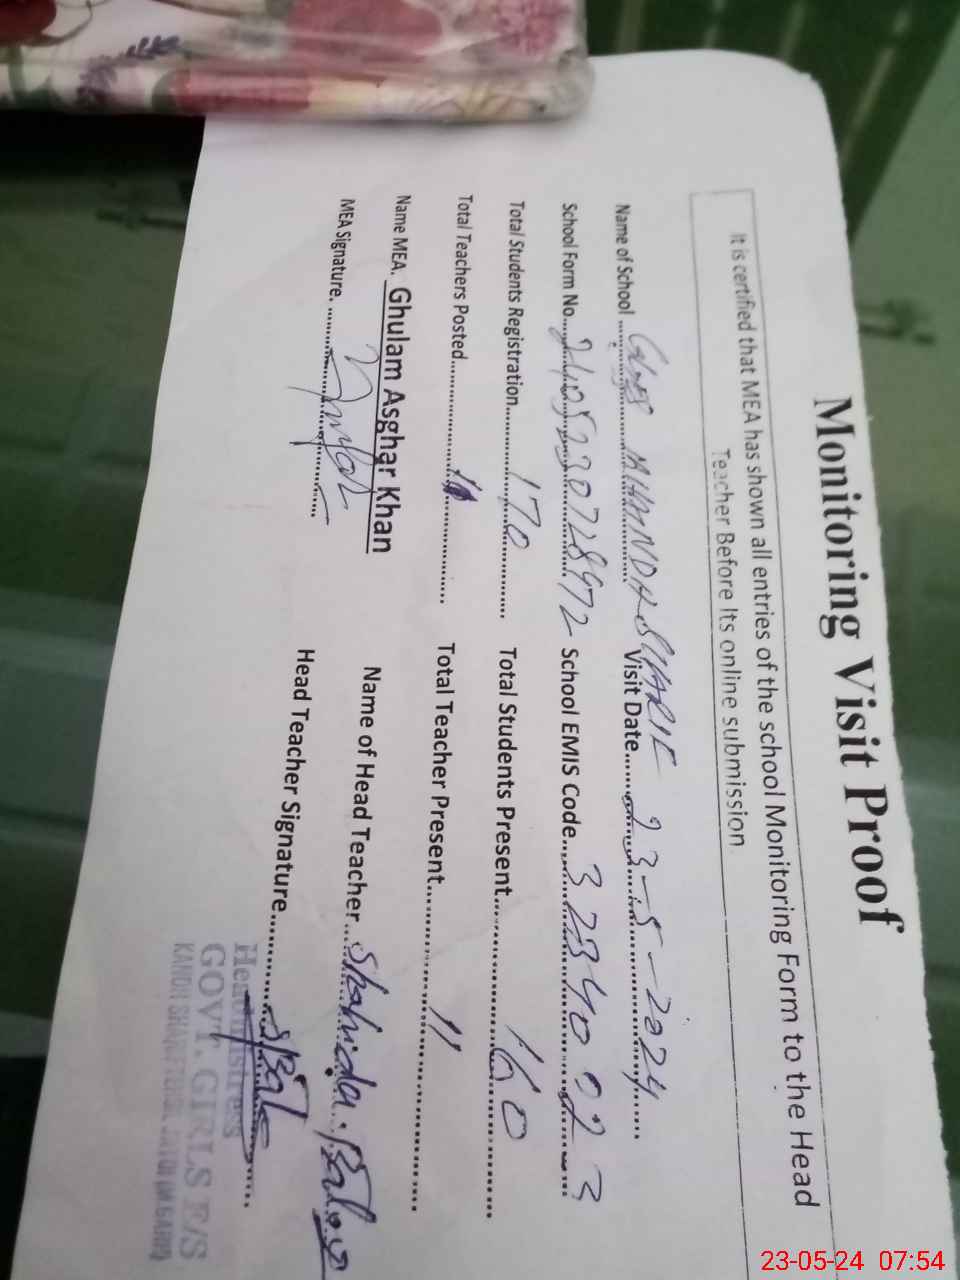 Monitoring Visit Proof
It is certified that MEA has shown all entries of the school Monitoring Form to the Head
Teacher Before Its online submission
Name of School Visit Date 23-5-2024
School Form No. 2405230728972 School EMIS Code 32340023
Total Students Registration 170 Total Students Present 160
Total Teachers Posted 11 Total Teacher Present 11
Name MEA. Ghulam Asghar Khan Name of Head Teacher Shahida
MEA Signature. Head Teacher Signature
Headmistress
GOVT. GIRLS E/S
23-05-24 07:54